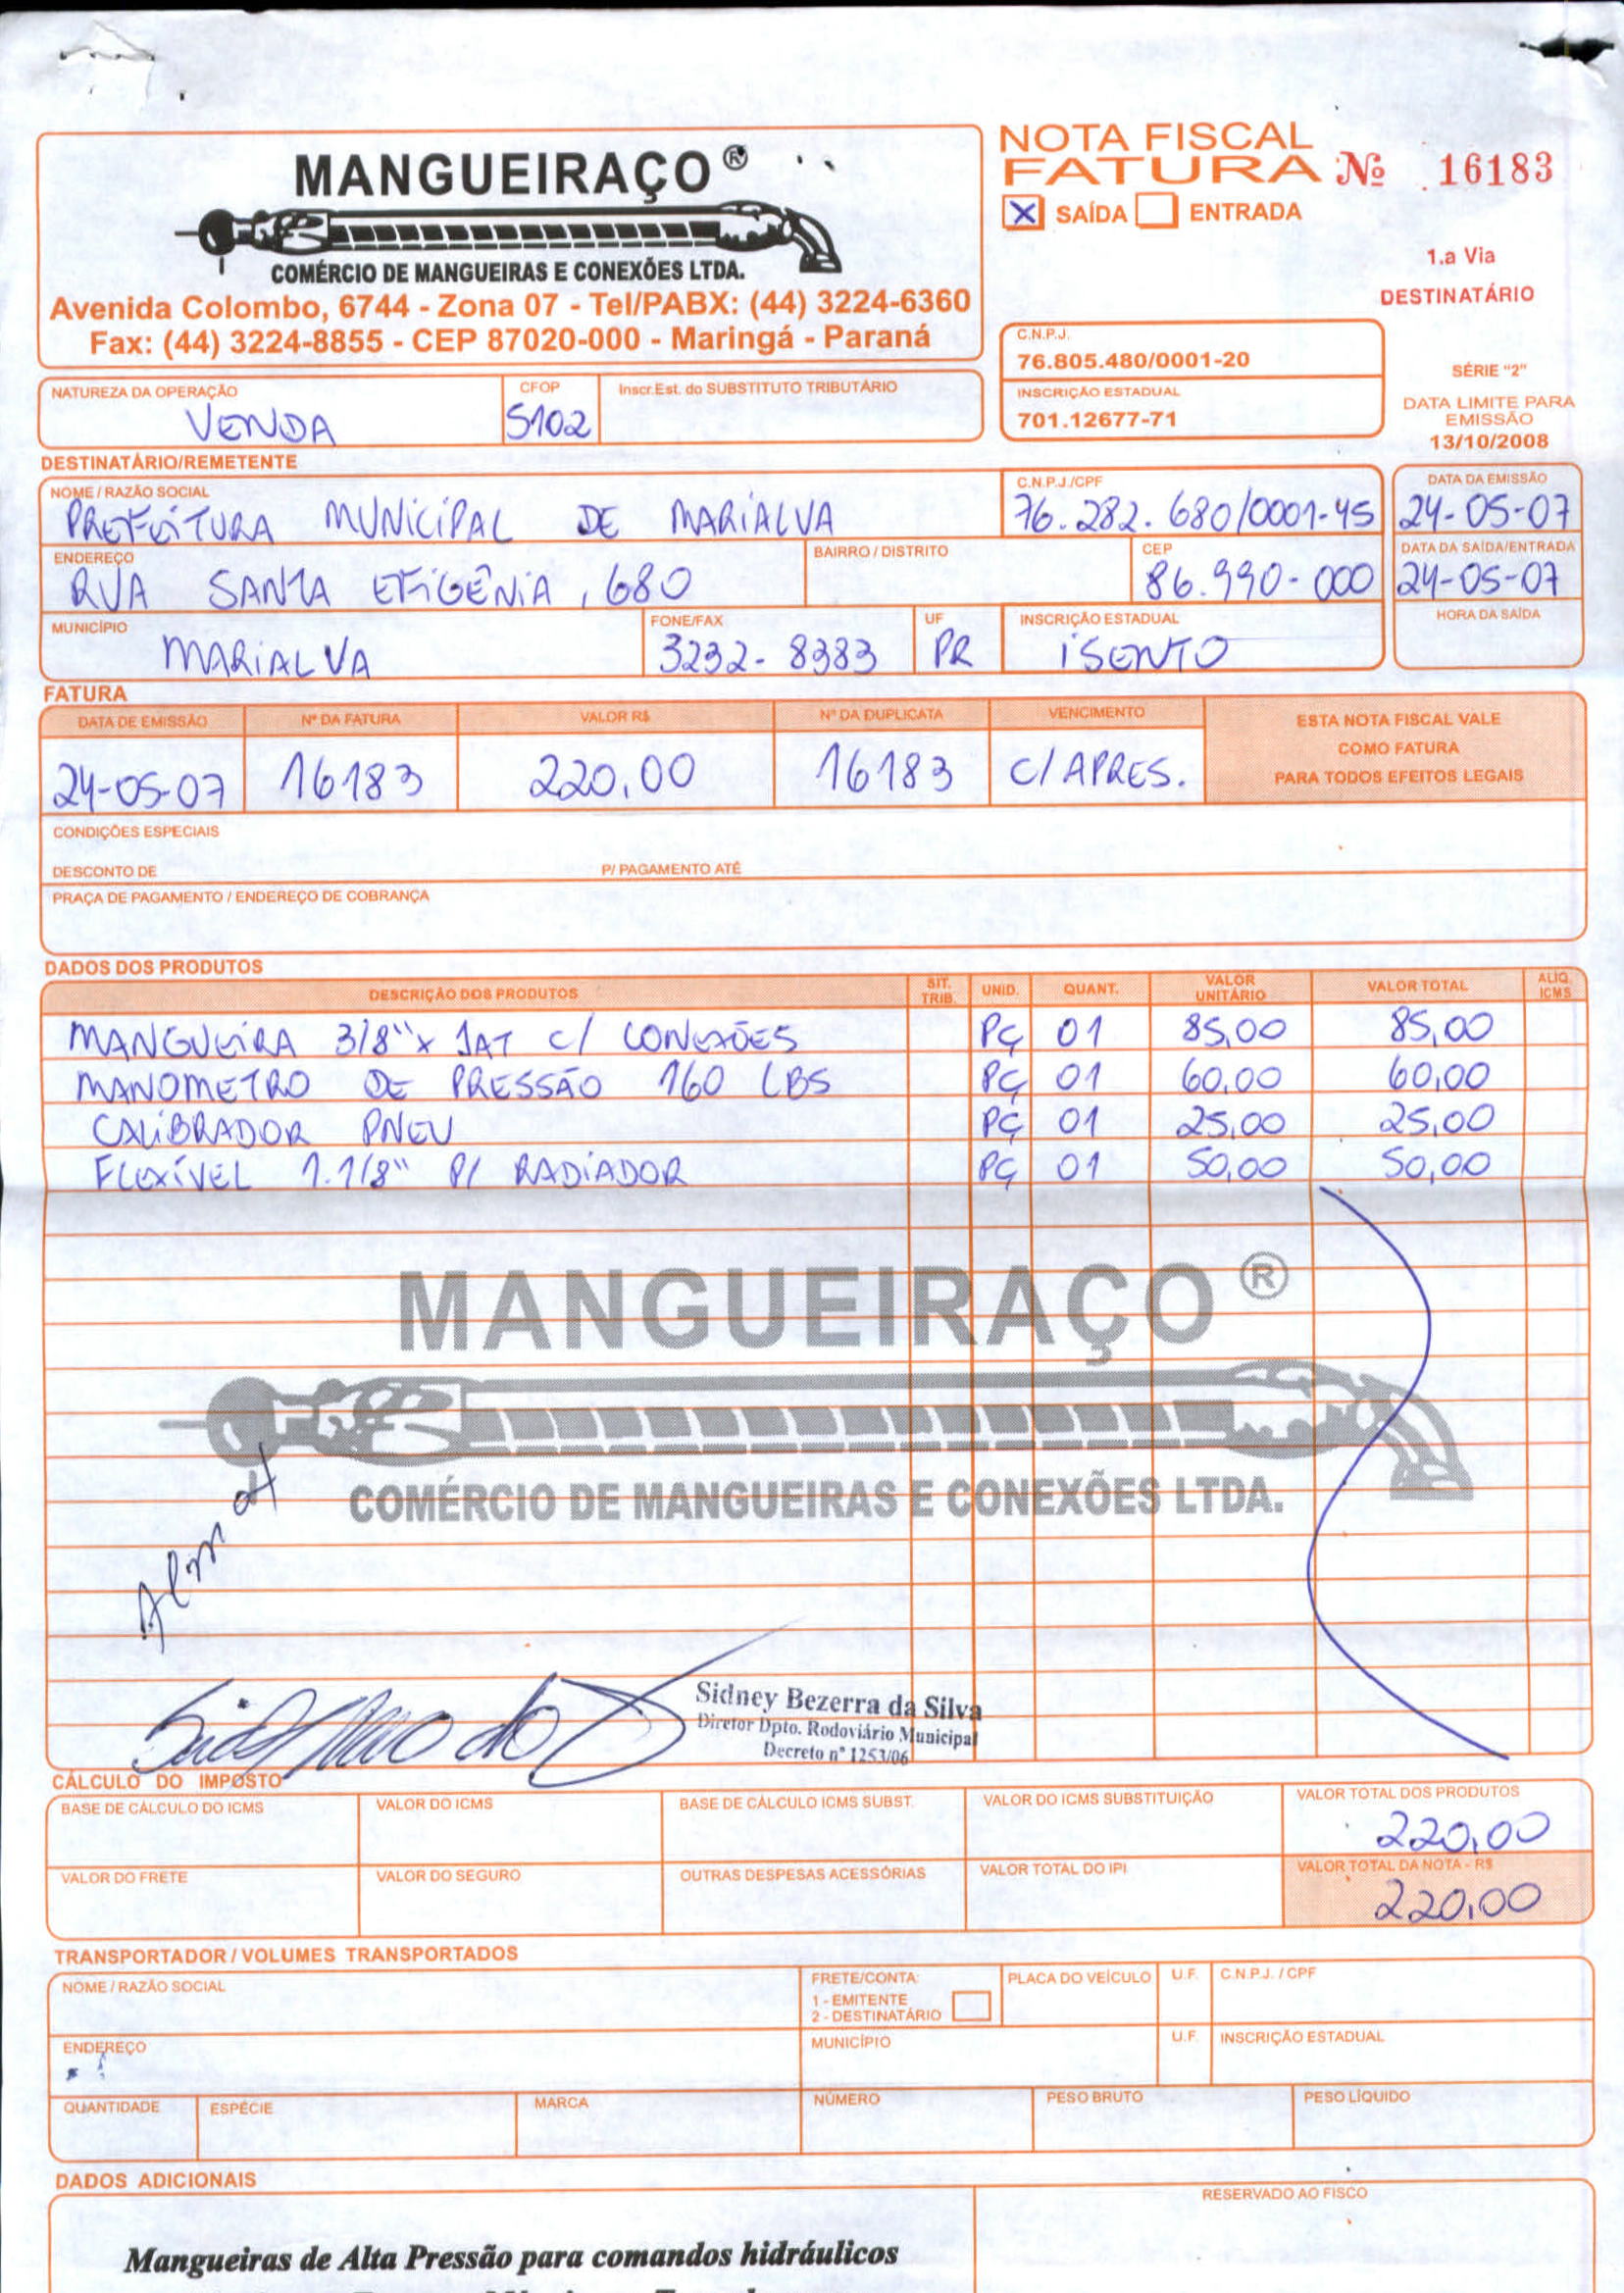 MANGUEIRAÇO®
COMÉRCIO DE MANGUEIRAS E CONEXÕES LTDA.
Avenida Colombo, 6744 - Zona 07 - Tel/PABX: (44) 3224-6360
Fax: (44) 3224-8855 - CEP 87020-000 - Maringá - Paraná
NOTA FISCAL
FATURA Nº 16183
X SAÍDA ENTRADA
1.a Via
DESTINATÁRIO
C.N.P.J.
76.805.480/0001-20
INSCRIÇÃO ESTADUAL
701.12677-71
SÉRIE "2"
DATA LIMITE PARA
EMISSÃO
13/10/2008
NATUREZA DA OPERAÇÃO CFOP Inscr.Est. do SUBSTITUTO TRIBUTÁRIO
VENDA 5102
DESTINATÁRIO/REMETENTE
NOME / RAZÃO SOCIAL C.N.P.J./CPF DATA DA EMISSÃO
PREFEITURA MUNICIPAL DE MARIALVA 76.282.680/0001-45 24-05-07
ENDEREÇO BAIRRO / DISTRITO CEP DATA DA SAÍDA/ENTRADA
RUA SANTA EFIGÊNIA, 680 86.990-000 24-05-07
MUNICÍPIO FONE/FAX UF INSCRIÇÃO ESTADUAL HORA DA SAÍDA
MARIALVA 3232-8383 PR ISENTO
FATURA
DATA DE EMISSÃO Nº DA FATURA VALOR R$ Nº DA DUPLICATA VENCIMENTO
24-05-07 16183 220,00 16183 C/APRES.
ESTA NOTA FISCAL VALE
COMO FATURA
PARA TODOS EFEITOS LEGAIS
CONDIÇÕES ESPECIAIS
DESCONTO DE P/ PAGAMENTO ATÉ
PRAÇA DE PAGAMENTO / ENDEREÇO DE COBRANÇA
DADOS DOS PRODUTOS
DESCRIÇÃO DOS PRODUTOS SIT. TRIB. UNID. QUANT. VALOR UNITÁRIO VALOR TOTAL ALIQ. ICMS
MANGUEIRA 3/8" x 1AT C/ CONEXÕES PÇ 01 85,00 85,00
MANOMETRO DE PRESSÃO 160 LBS PÇ 01 60,00 60,00
CALIBRADOR PNEU PÇ 01 25,00 25,00
FLEXÍVEL 1.1/8" P/ RADIADOR PÇ 01 50,00 50,00
MANGUEIRAÇO®
COMÉRCIO DE MANGUEIRAS E CONEXÕES LTDA.
Sidney Bezerra da Silva
Diretor Dpto. Rodoviário Municipal
Decreto nº 1253/06
CÁLCULO DO IMPOSTO
BASE DE CÁLCULO DO ICMS VALOR DO ICMS BASE DE CÁLCULO ICMS SUBST. VALOR DO ICMS SUBSTITUIÇÃO VALOR TOTAL DOS PRODUTOS
220,00
VALOR DO FRETE VALOR DO SEGURO OUTRAS DESPESAS ACESSÓRIAS VALOR TOTAL DO IPI VALOR TOTAL DA NOTA - R$
220,00
TRANSPORTADOR / VOLUMES TRANSPORTADOS
NOME / RAZÃO SOCIAL FRETE/CONTA: PLACA DO VEÍCULO U.F. C.N.P.J. / CPF
1 - EMITENTE
2 - DESTINATÁRIO
ENDEREÇO MUNICÍPIO U.F. INSCRIÇÃO ESTADUAL
QUANTIDADE ESPÉCIE MARCA NÚMERO PESO BRUTO PESO LÍQUIDO
DADOS ADICIONAIS
RESERVADO AO FISCO
Mangueiras de Alta Pressão para comandos hidráulicos